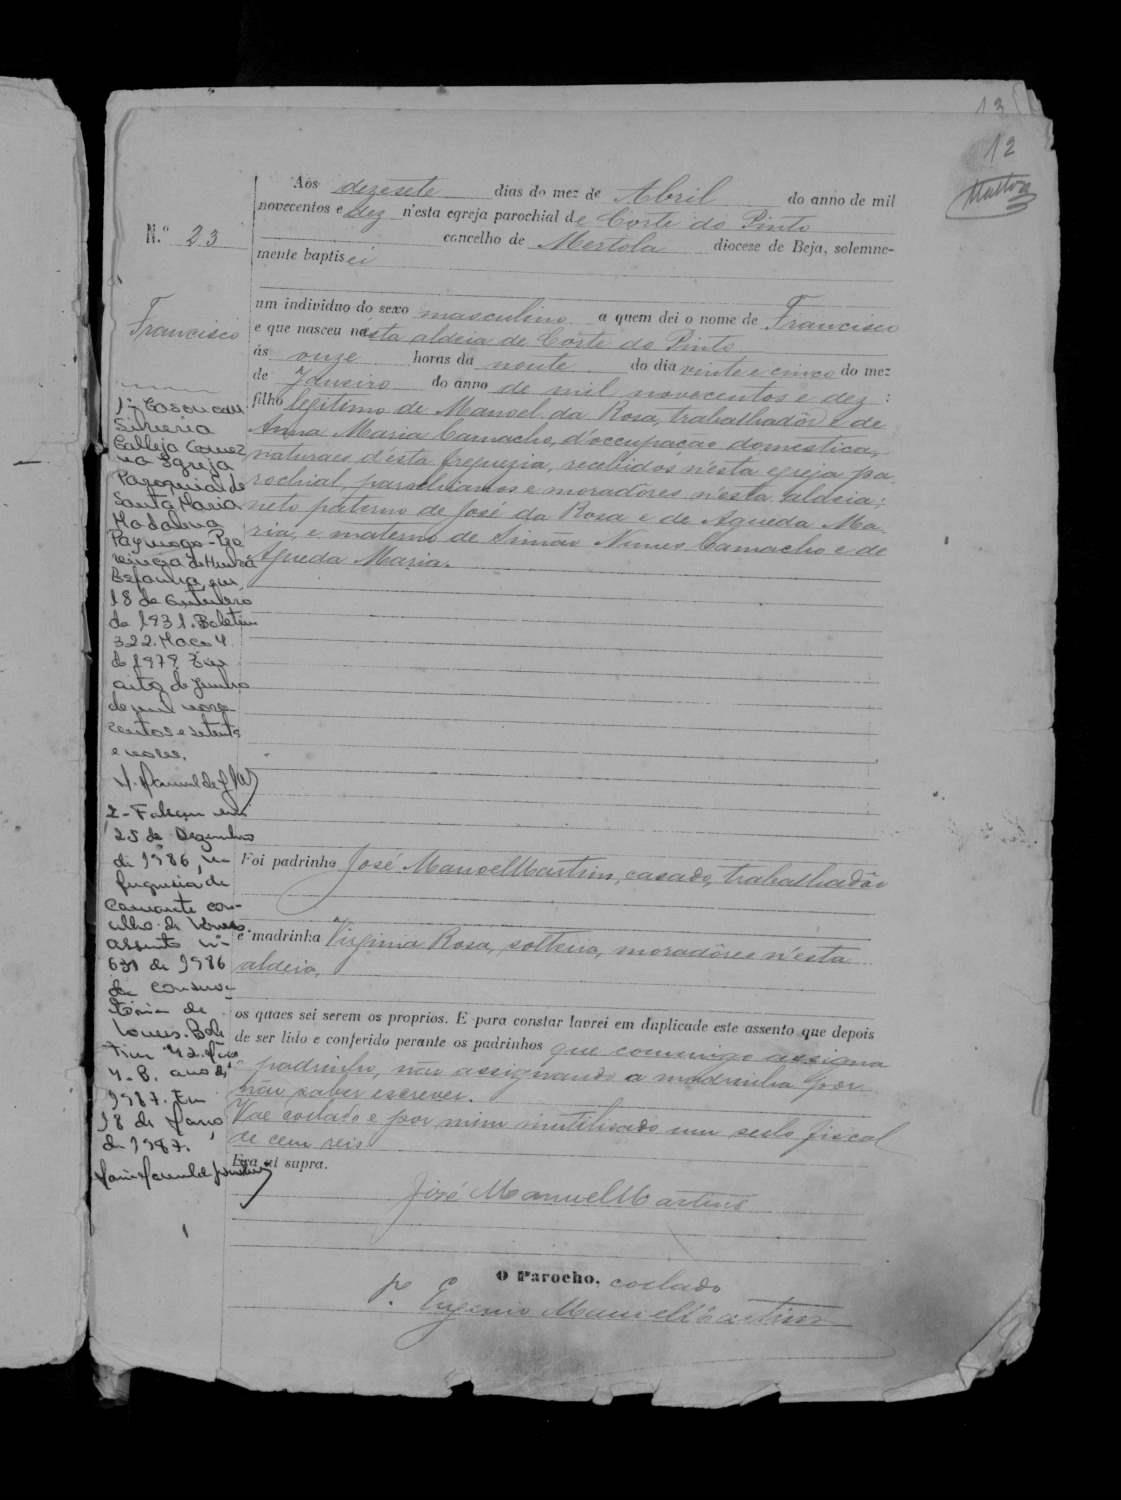 13
12
Aos dezesete dias do mez de Abril do anno de mil
novecentos e dez n'esta egreja parochial de Corte do Pinto
N.º 23
concelho de Mertola diocese de Beja, solemne-
mente baptisei
um individuo do sexo masculino a quem dei o nome de Francisco
Francisco
e que nasceu nesta aldeia de Corte do Pinto
ás onze horas da noute do dia vente e cinco do mez
de Janeiro do anno de mil novecentos e dez:
filho legitimo de Manoel da Rosa, trabalhadôr e de
Anna Maria Camacho, d'occupação domestica,
naturaes d'esta freguezia, recebidos n'esta egreja pa
rochial, parochianos e moradôres n'esta aldeia;
neto paterno de José da Rosa e de Agueda Ma-
ria, e materno de Simão Nunes Camacho e de
Agueda Maria.
1º Casou com
Silveria
Calleja Gomez
na Igreja
Paroquial de
Santa Maria
Madalena
Paymogo-Pro
vincia de Huelva
Espanha, em
18 de
de 1931. Boletim
322. Maço 4
de 1979. Em
oito de Junho
de mil nove
centos e setenta
e nove.
2-Faleceu em
25 de Dezembro
de 1986, na
freguesia de
Camarate con-
celho de Loures
assento nº
631 de 1986
da conserva-
tória de
Loures. Bole
tim 42. Maço
4-B. ano de
1987. Em
18 de Março
de 1987.
Foi padrinho José Manoel Martins, casado, trabalhadôr
e madrinha Virginia Rosa, solteira, moradôres n'esta
aldeia,
os quaes sei serem os proprios. E para constar lavrei em duplicado este assento que depois
de ser lido e conferido perante os padrinhos que commigo assigna
o padrinho, não assignando a madrinha por
não saber escrever.
Vae collado e por mim inutilisado um sello fiscal
de cem reis
Era ut supra.
José Manuel Martins
O Parocho, collado
P. Eugenio Manuel Martins